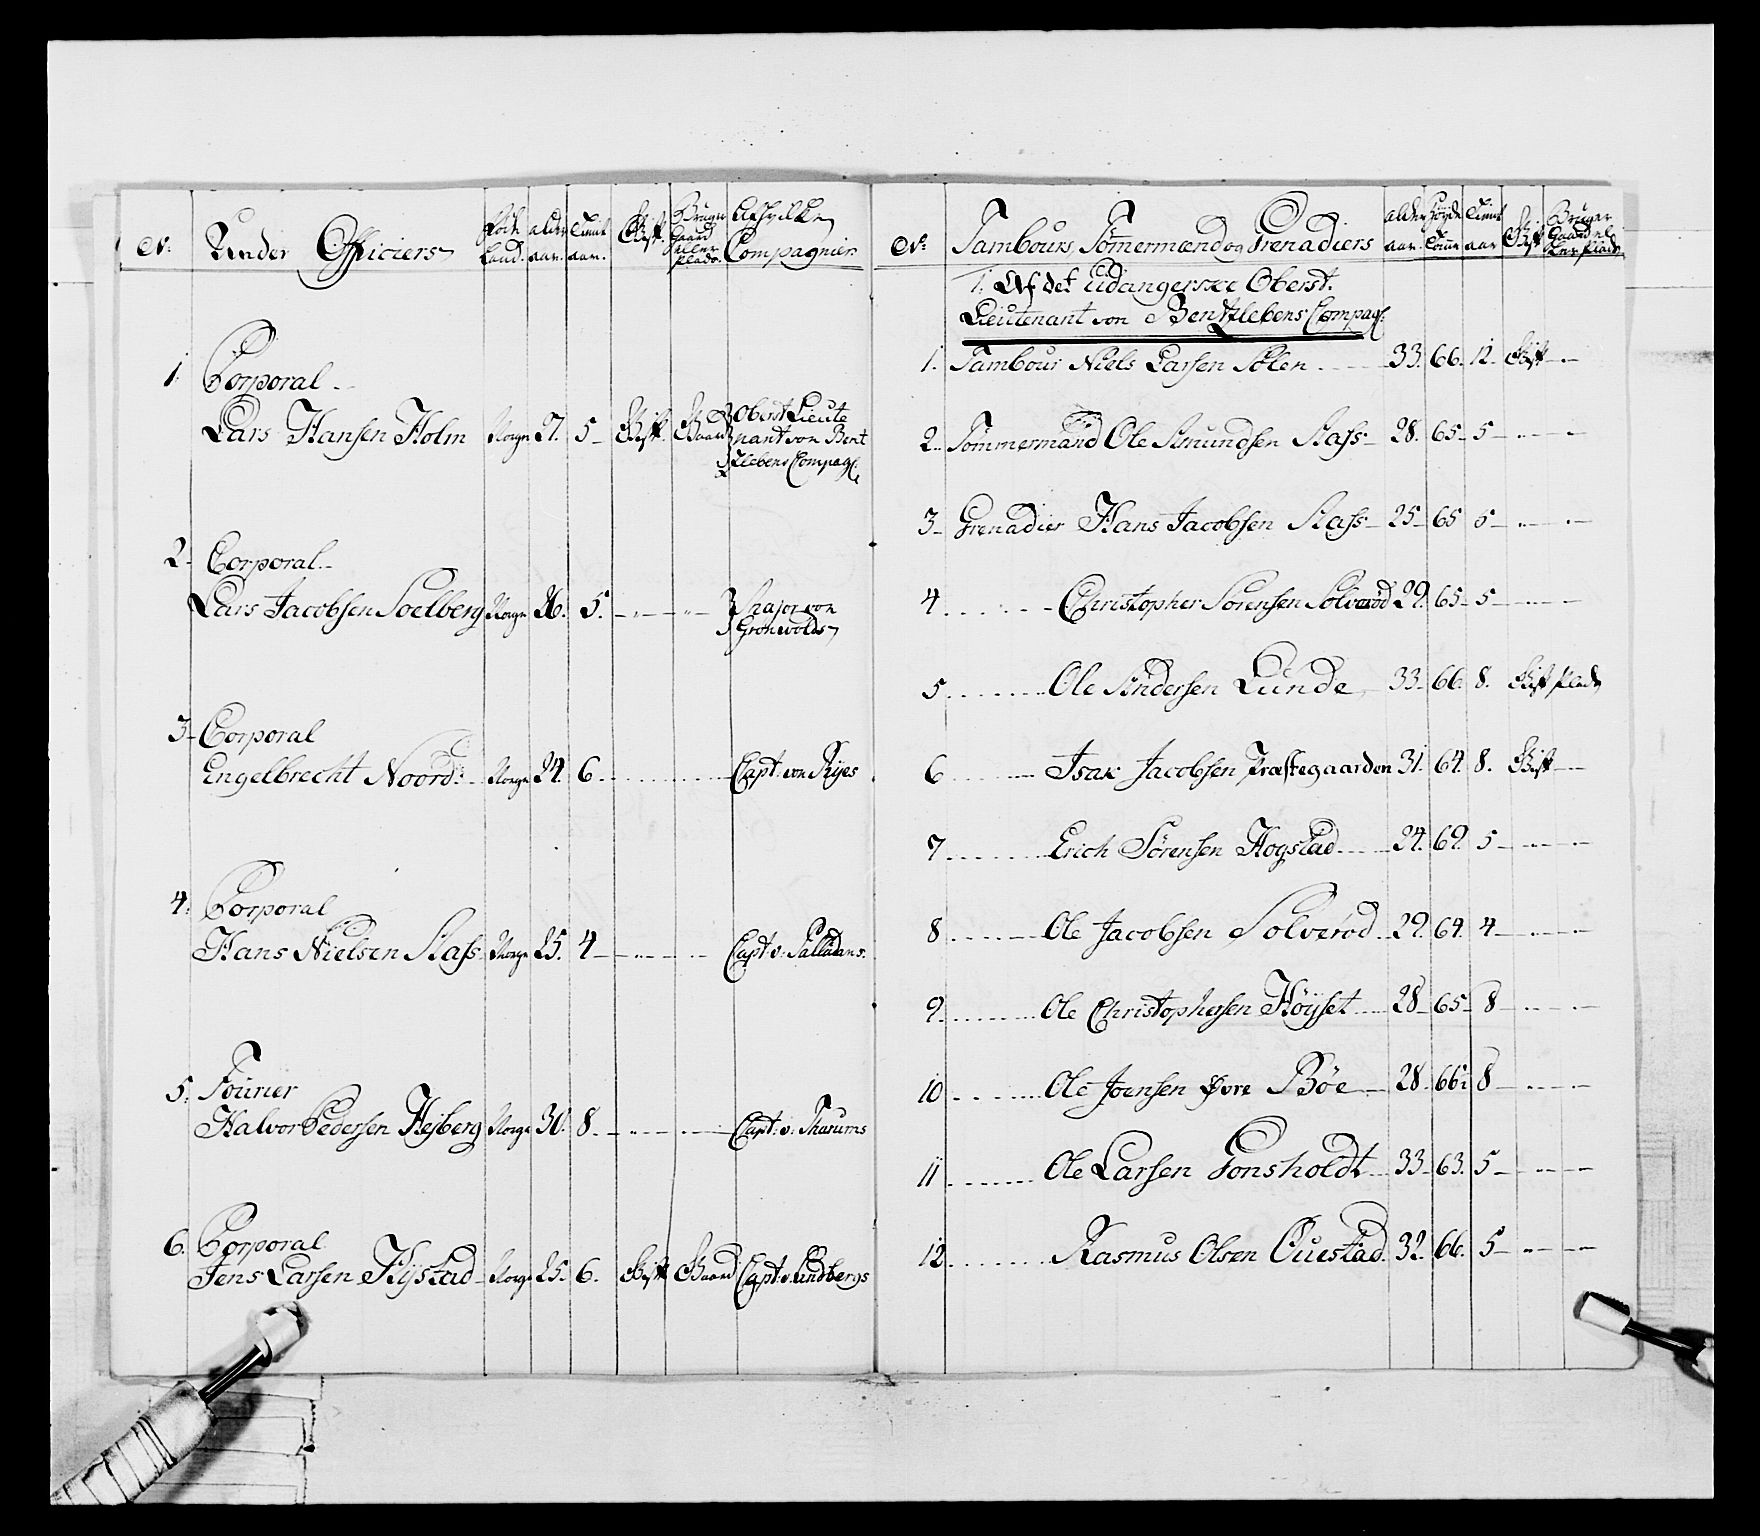 No: Under Officiers Föde Land. alder aar. Tient aar. Gift. Bruger Gaard eller Plads. Af hvilke Compagnier
1. Corporal
Lars Hansen Holm Norge 27. 5 Gift. Gaard Oberst Lieute
nant von Bent
zlebens Compag:
2. Corporal
Lars Jacobsen Soelberg Norge 26. 5. Major von
Grönvolds
3. Corporal
Engelbrecht Noord: Norge 24 6 Capt. von Ryes
4. Corporal
Hans Nielsen Aass Norge 25. 4 Capt. v:
5. Fourier
Halvor Pedersen Norge 30. 8 Capt: v:
6. Corporal
Jens Larsen Norge 25. 6. Gift Gaard Capt. v: Lundbergs
No: Tambours, Tömmermænd og Grenadiers alder aar. Höyde Tomr Tient aar Gift Bruger Gaard el ler Plads
1. Af det Eidangerske Oberst
Lieutenant von Bentzlebens Compag:
1. Tambour Niels Larsen 33. 66. 12. Gift
2. Tömmermand Ole Amundsen Aass 28. 65 5
3 Grenadier Hans Jacobsen Aass 25 65 5
4 Christopher Sörensen Solveröd 29. 65 5
5 Ole Andersen Lunde 33 66. 8. Gift Plads
6 Isak Jacobsen Præstegaarden 31. 64. 8. Gift
7 Erich Sörensen Hogstad 24. 69. 5
8 Ole Jacobsen Solveröd 29. 64. 4
9. Ole Christophersen Höyset 28 65 8
10 Ole Joensen Övre Böe 28. 66½ 8
11 Ole Larsen Tonsholdt 33 63. 5
12 Rasmus Olsen 32. 66. 5